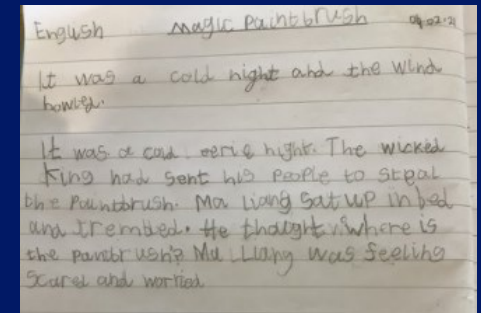 English Magic Paintbrush 04.02.21
It was a cold night and the wind
howled.
It was a cold eerie night. The wicked
King had sent his people to steal
the Paintbrush. Ma Liang sat up in bed
and trembed. He thought where is
the paintbrush? Ma Liang was feeling
scared and worried